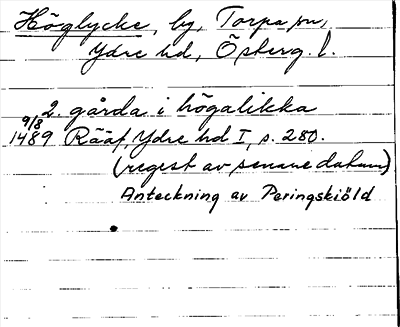 Höglycke, by, Torpa sn,
Ydre hd, Österg. l.
2. gårda i högalikka
9/8
1489 Rääf, Ydre hd I, s. 280.
(regest av senare datum)
Anteckning av Peringskiöld